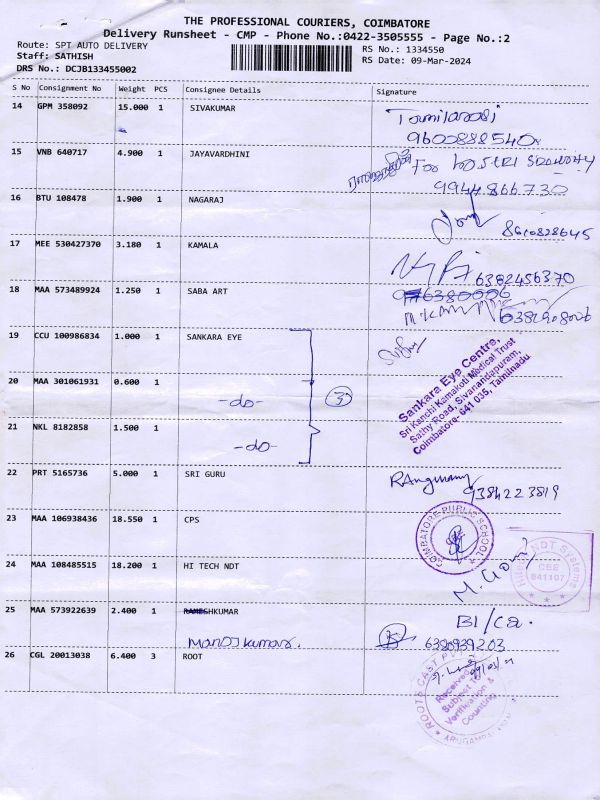 THE PROFESSIONAL COURIERS, COIMBATORE
Delivery Runsheet - CMP - Phone No.:0422-3505555 - Page No.:2
Route: SPT AUTO DELIVERY
Staff: SATHISH
DRS No.: DCJB133455002
RS No.: 1334550
RS Date: 09-Mar-2024
S No Consignment No Weight PCS Consignee Details Signature
14 GPM 358092 15.000 1 SIVAKUMAR
9600888540
15 VNB 640717 4.900 1 JAYAVARDHINI
For
9944866730
16 BTU 108478 1.900 1 NAGARAJ
8610828645
17 MEE 530427370 3.180 1 KAMALA
6382456370
18 MAA 573489924 1.250 1 SABA ART
19 CCU 100986834 1.000 1 SANKARA EYE
Sankara Eye Centre,
Sri Kanchi Kamakoti Medical Trust
Sathy Road, Sivanandapuram,
Coimbatore- 641 035, Tamilnadu
20 MAA 301061931 0.600 1
-do-
3
21 NKL 8182858 1.500 1
-do-
22 PRT 5165736 5.000 1 SRI GURU
9384223819
23 MAA 106938436 18.550 1 CPS
COIMBATORE PUBLIC SCHOOL
24 MAA 108485515 18.200 1 HI TECH NDT
NDT Systems
CBE
641107
25 MAA 573922639 2.400 1 KUMAR
Manoj kumar.
6380939203
26 CGL 20013038 6.400 3 ROOT
ROOTS CAST
Received
Subject To
Verification &
Counting